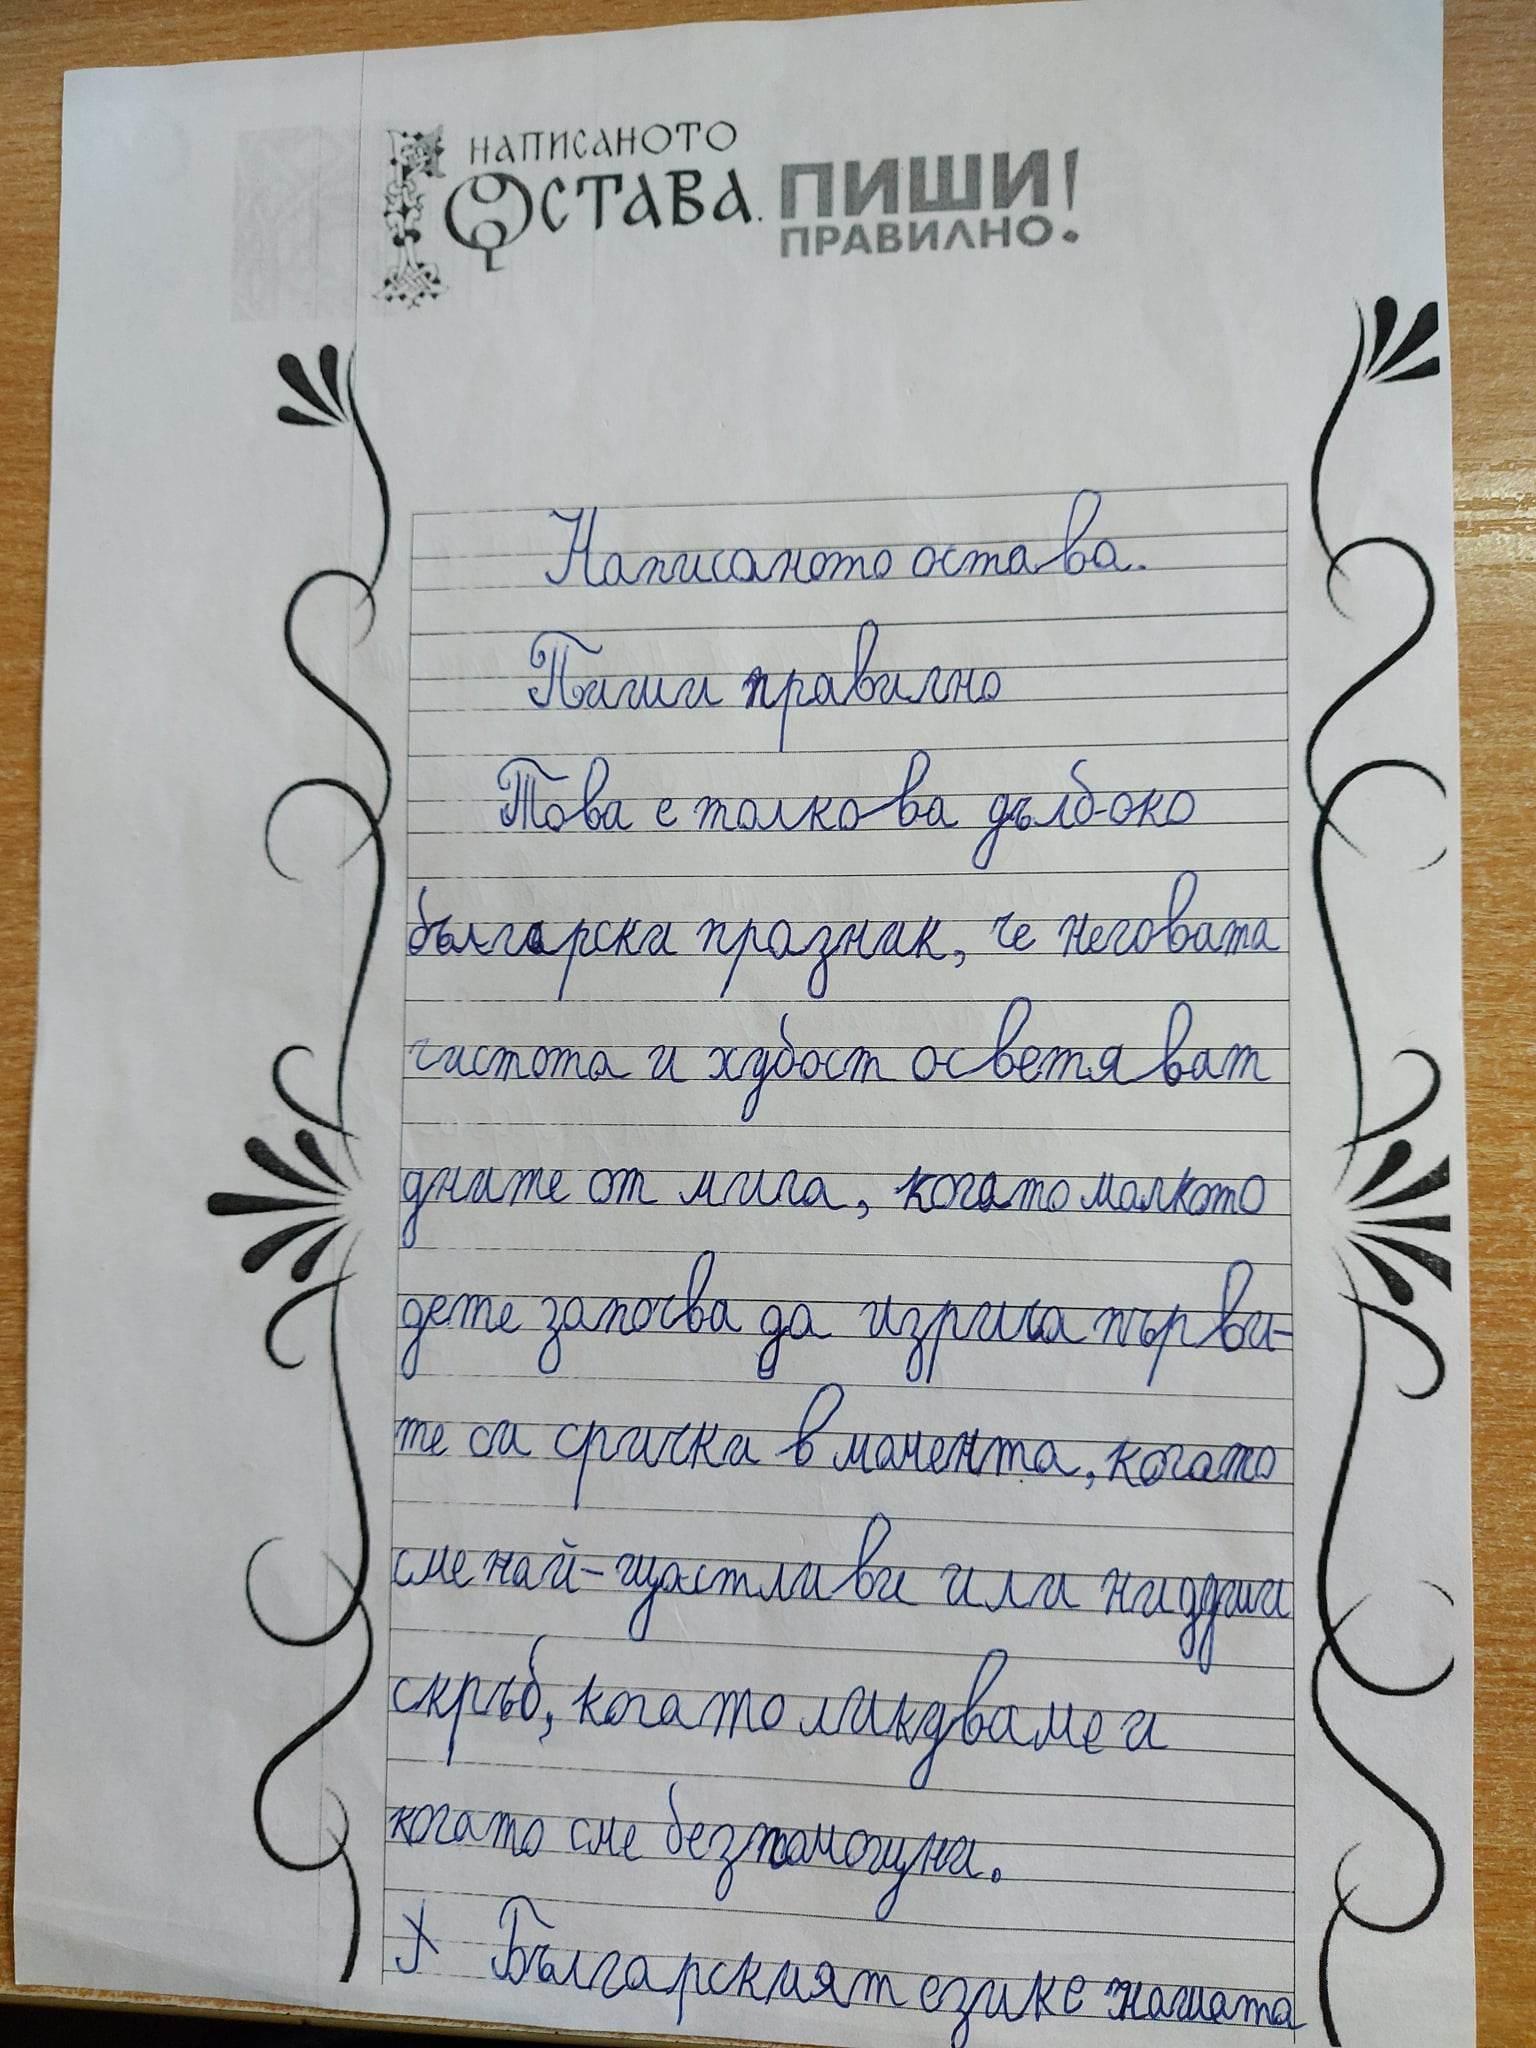 НАПИСАНОТО
ОСТАВА.
ПИШИ!
ПРАВИЛНО.
Написаното остава.
Пиши правилно
Това е толкова дълбоко
български празник, че неговата
чистота и хубост осветяват
дните от мига, когато малкото
дете започва да изрича първи-
те си срички в момента, когато
сме най-щастливи или ни души
скръб, когато ликуваме и
когато сме безпомощни.
Българският език е нашата